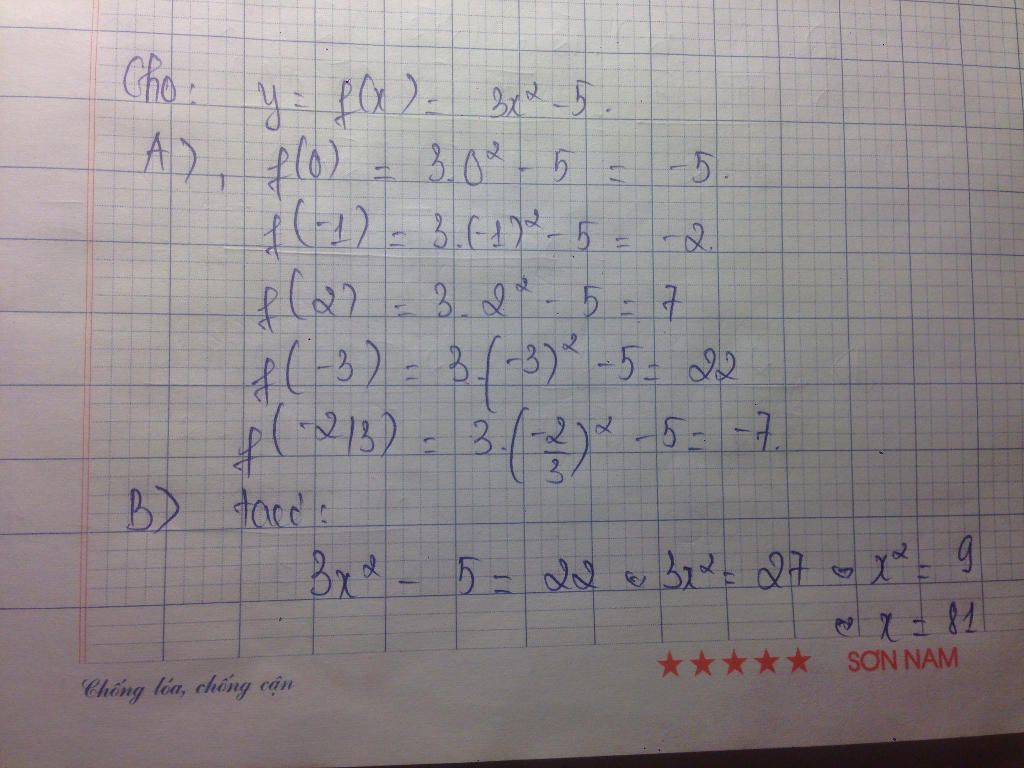 Cho: y = f(x) = 3x² - 5.
A), f(0) = 3.0² - 5 = -5.
f(-1) = 3.(-1)² - 5 = -2.
f(2) = 3.2² - 5 = 7
f(-3) = 3.(-3)² - 5 = 22
f(-2/3) = 3.(-2/3)² - 5 = -7.
B) tacó:
3x² - 5 = 22 ∽ 3x² = 27 ∽ x² = 9
∽ x = 81
★★★★★ SƠN NAM
Chống lóa, chống cận